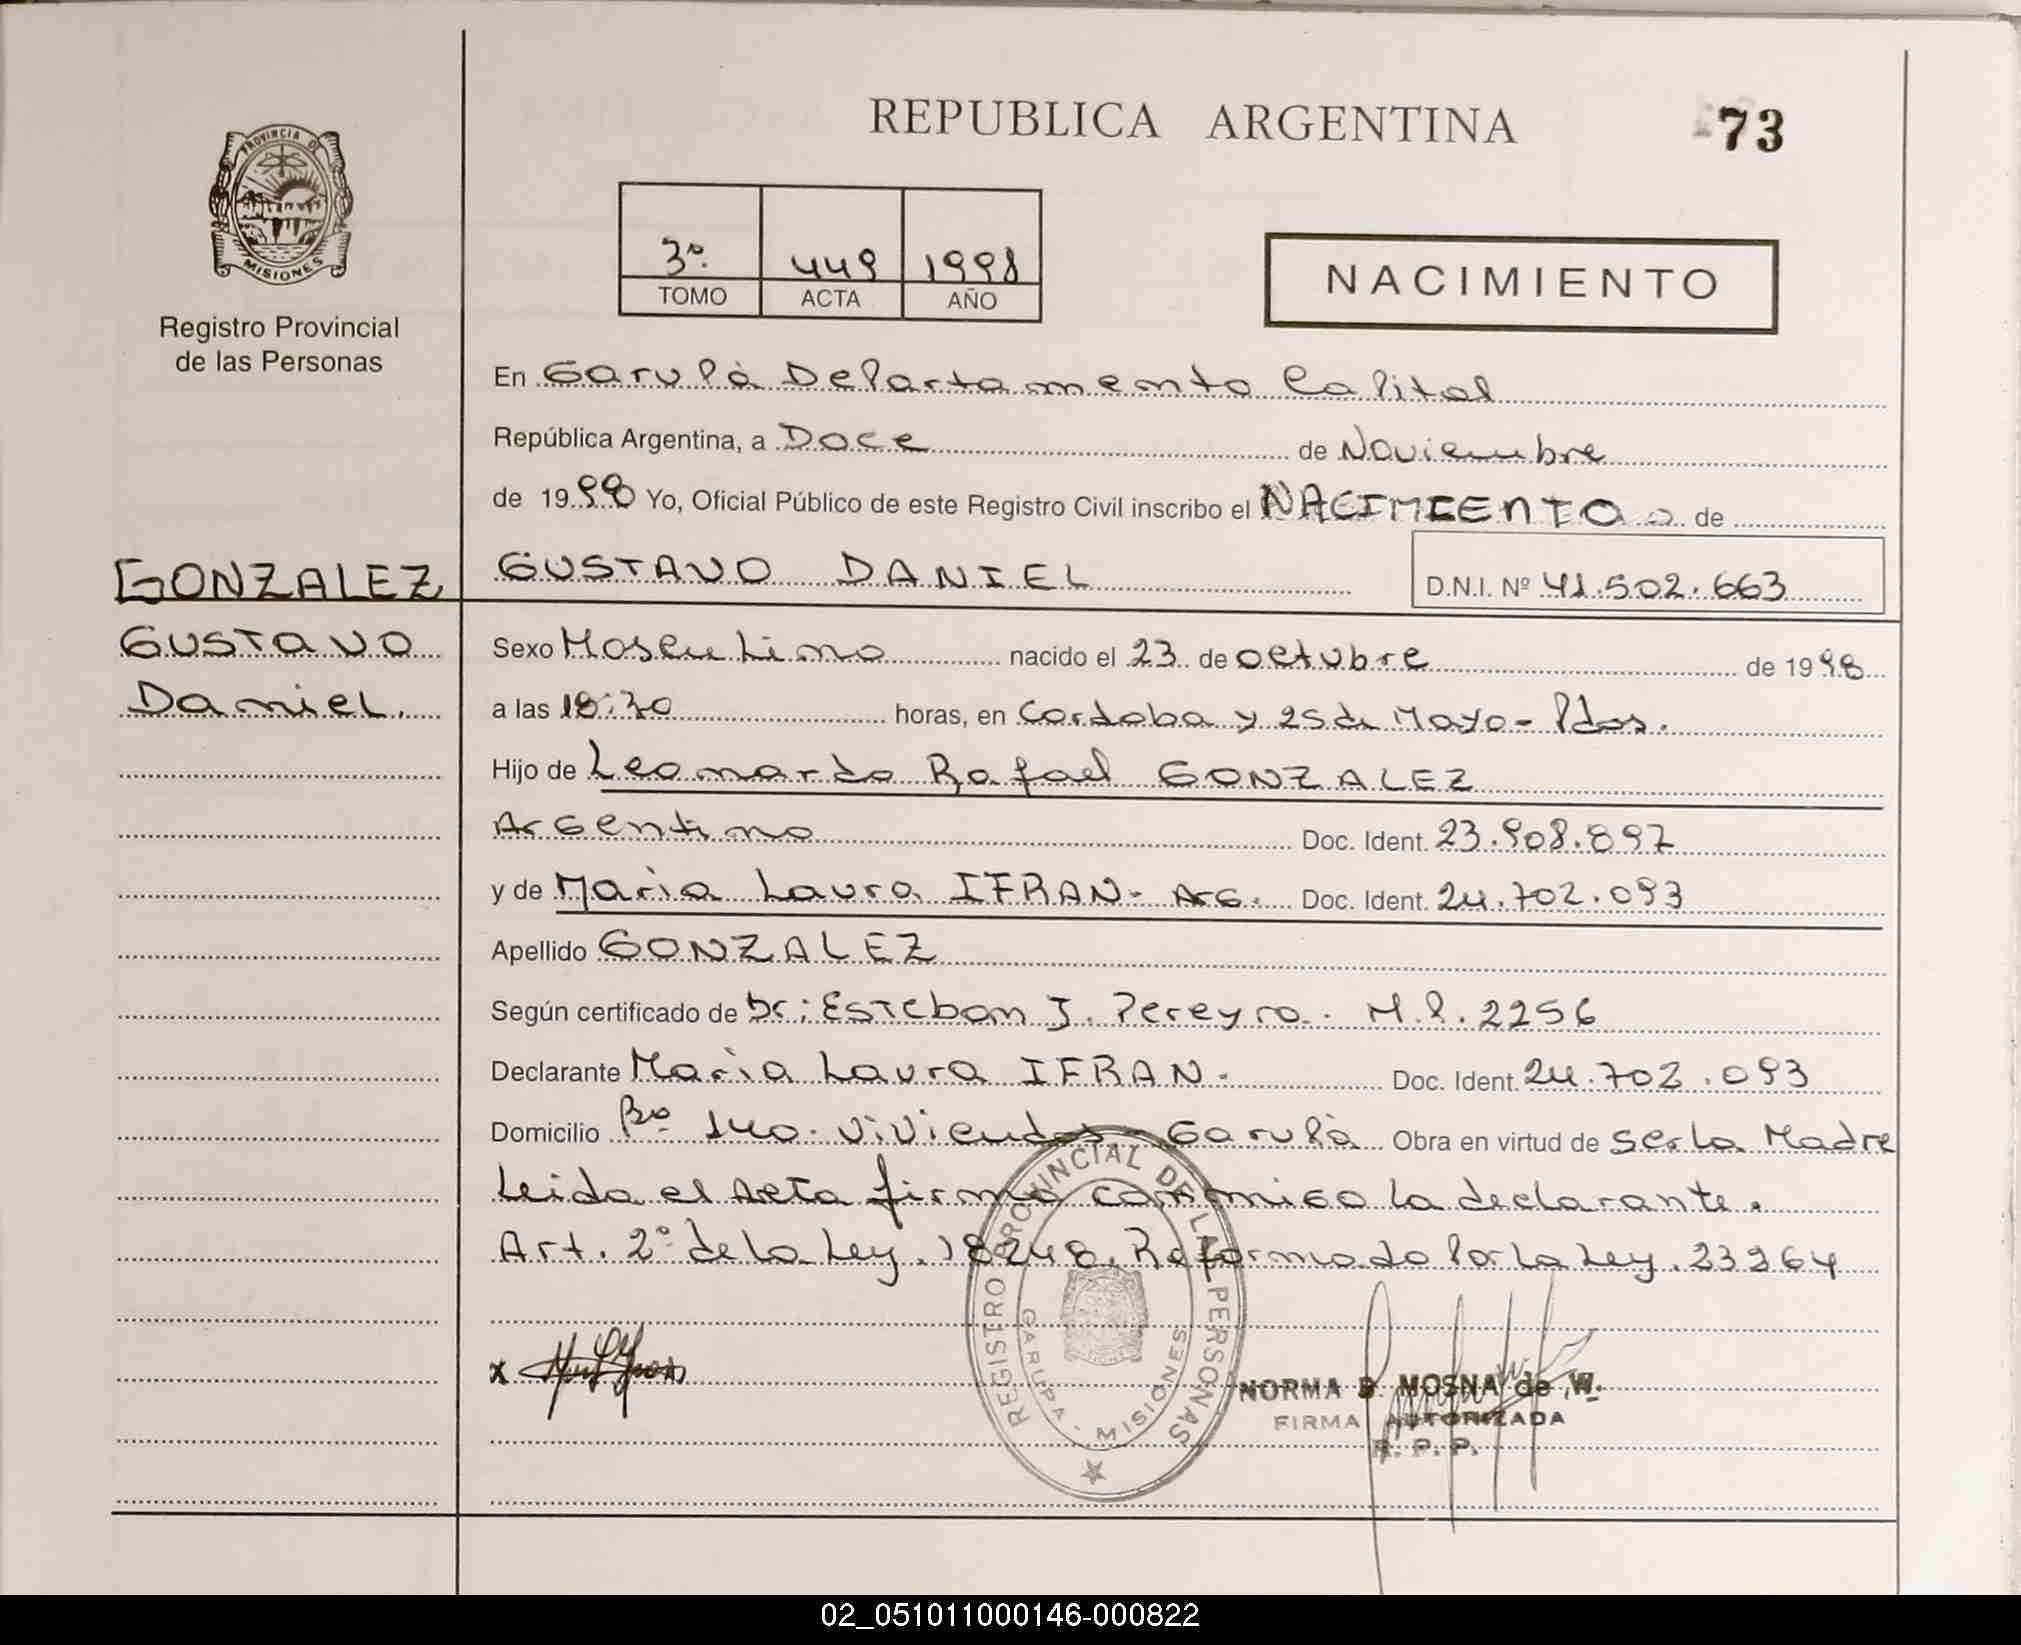 REPUBLICA ARGENTINA
73
PROVINCIA DE
MISIONES
Registro Provincial
de las Personas
3º. 449 1998
TOMO ACTA AÑO
NACIMIENTO
En Garupà Departamento Capital
República Argentina, a Doce de Noviembre
de 1998 Yo, Oficial Público de este Registro Civil inscribo el NACIMIENTO de
GONZALEZ GUSTAVO DANIEL D.N.I. Nº 41.502.663
GUSTAVO
Daniel.
Sexo Masculino nacido el 23 de octubre de 1998
a las 18:30 horas, en Cordoba y 25 de Mayo - Pdas.
Hijo de Leonardo Rafael GONZALEZ
Argentino Doc. Ident. 23.908.897
y de Maria Laura IFRAN - Arg. Doc. Ident. 24.702.093
Apellido GONZALEZ
Según certificado de Dr: Esteban J. Pereyra. M.P. 2256
Declarante Maria Laura IFRAN. Doc. Ident. 24.702.093
Domicilio Bº 140 Viviendas - Garupà Obra en virtud de ser la Madre
Leida el Acta firma conmigo la declarante.
Art. 2º de la Ley. 18248, Reformado Por la Ley. 23264
REGISTRO PROVINCIAL DE LAS PERSONAS
GARUPA - MISIONES
X
NORMA B. MOSNA de W.
FIRMA AUTORIZADA
R. P. P.
02_051011000146-000822